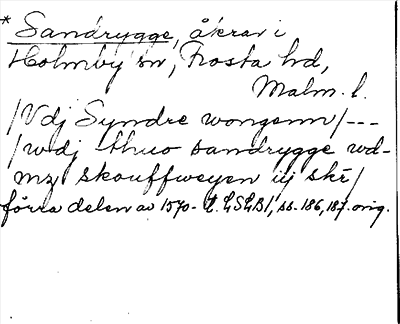 * Sandrygge, åkrar i
Holmby sn, Frosta hd,
Malm. l.
/Vdj Syndre wongenn/---
/wdj thuo sandrygge wd-
mz skouffweyen iij skr/
förra delen av 1570-t. LSGB1, ss. 186, 187. orig.